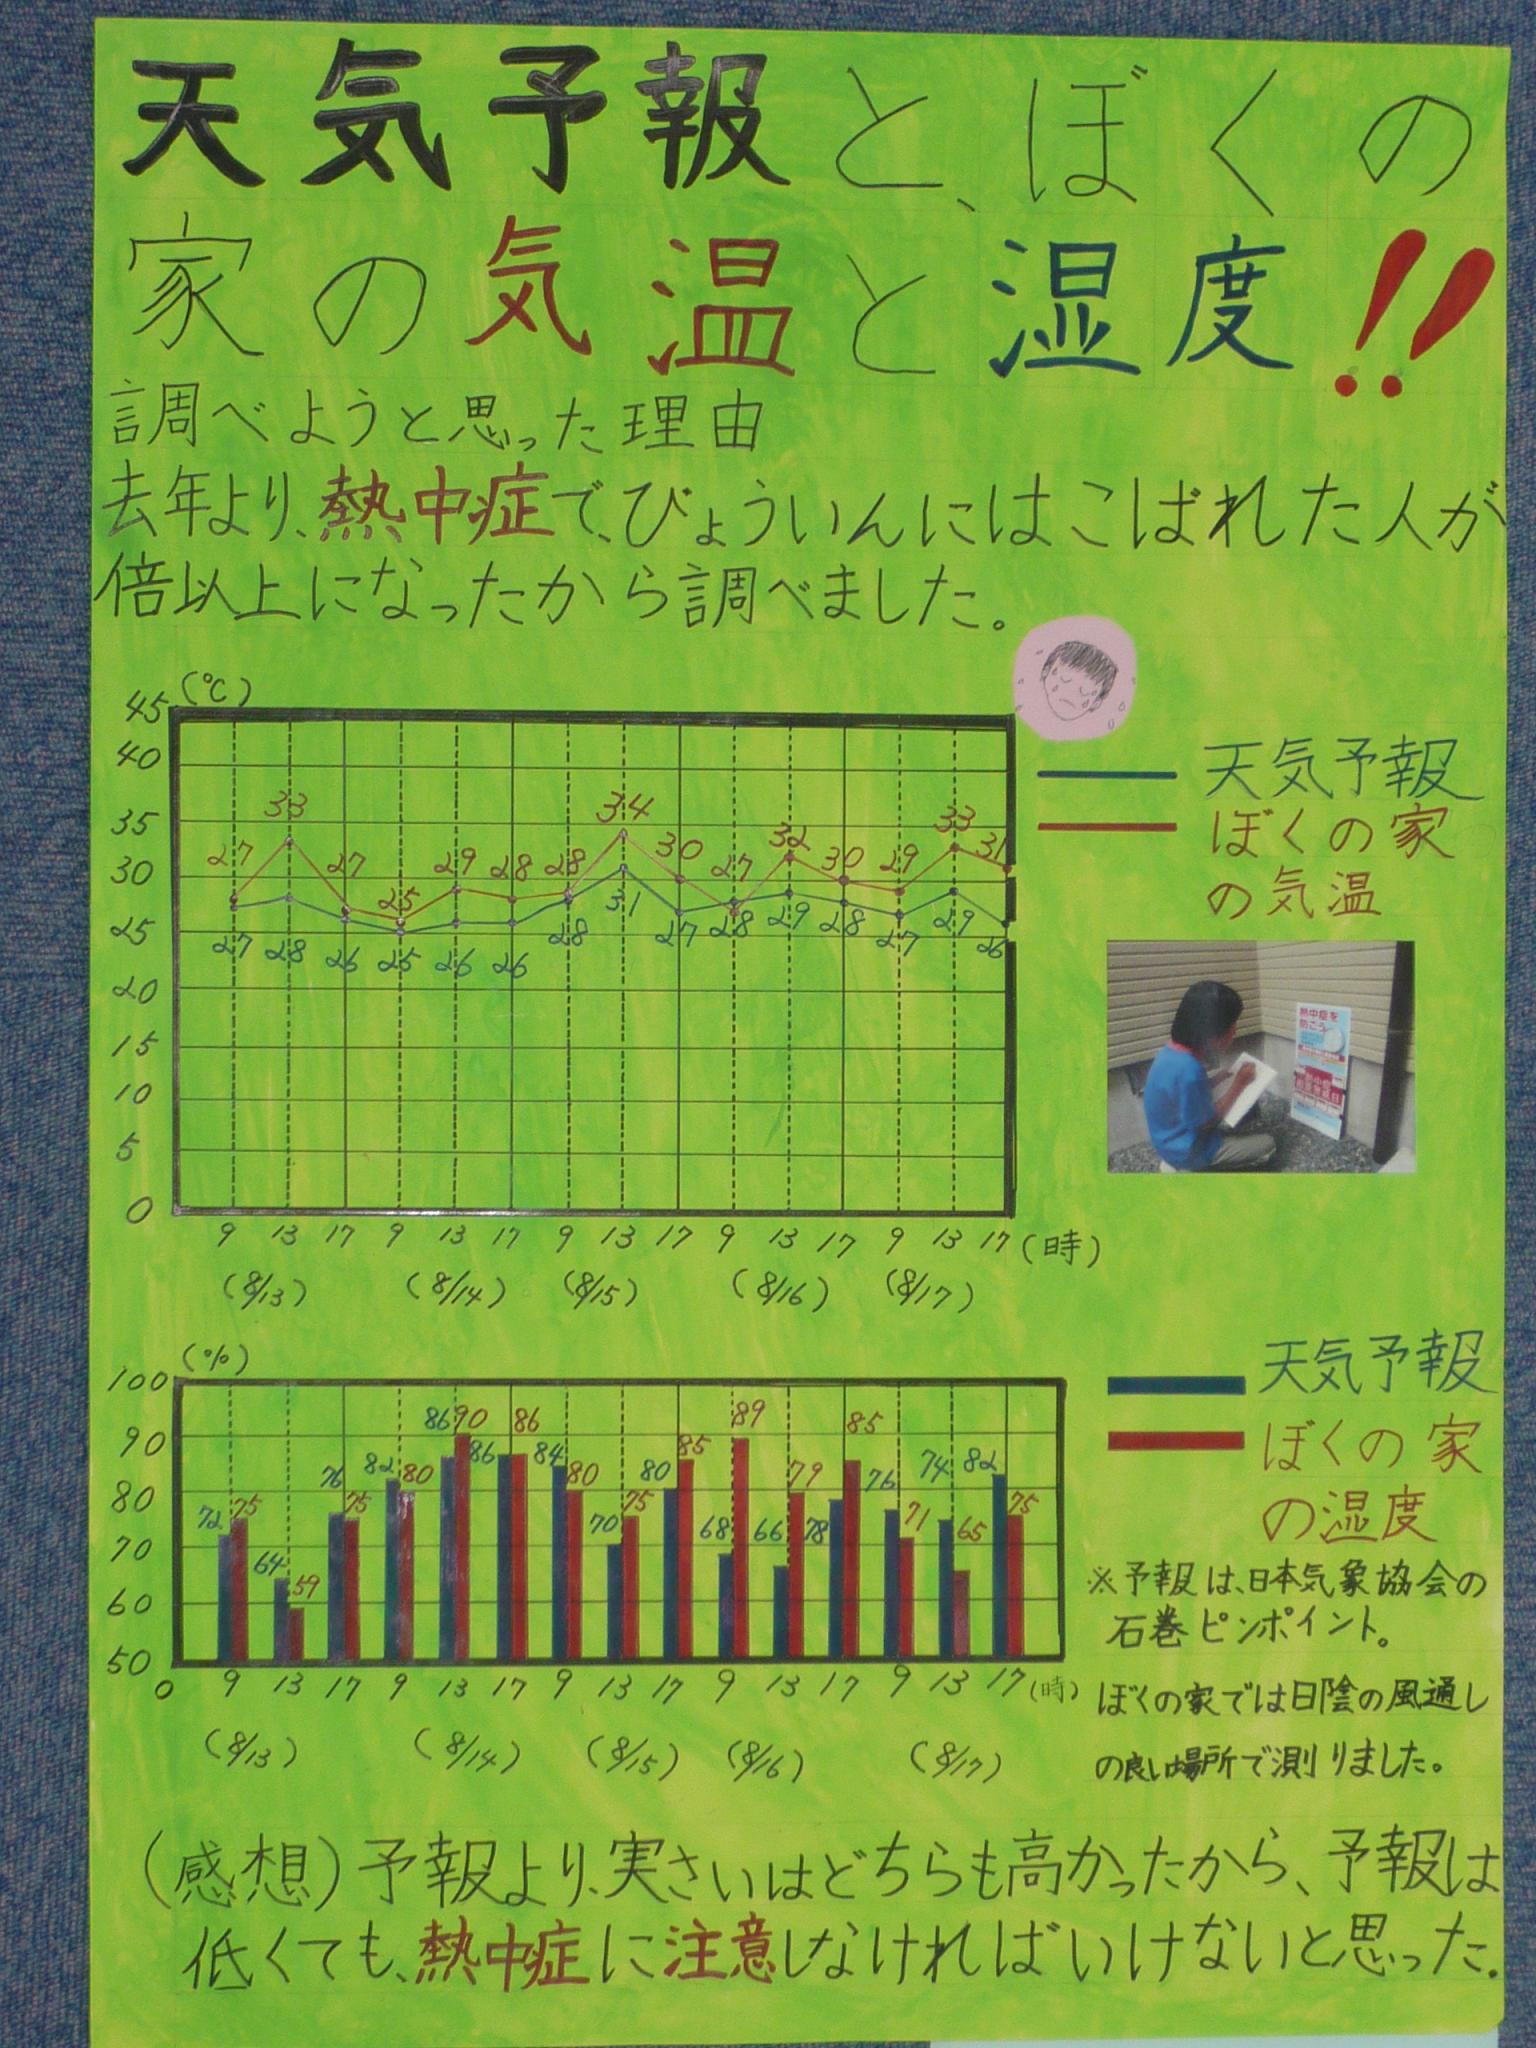 天気予報と、ぼくの
家の気温と湿度!!
調べようと思った理由
去年より、熱中症で、びょういんにはこばれた人が
倍以上になったから調べました。
(℃)
45
40
35
30
25
20
15
10
5
0
27 33 27 25 29 28 28 34 30 27 32 30 29 33 31
27 28 26 25 26 26 28 31 27 28 29 28 27 29 26
9 13 17 9 13 17 9 13 17 9 13 17 9 13 17 (時)
(8/13) (8/14) (8/15) (8/16) (8/17)
天気予報
ぼくの家
の気温
熱中症を
防ごう
(%)
100
90
80
70
60
50
0
72 75 64 59 76 75 82 80 86 90 86 86 84 80 70 75 80 85 68 89 66 79 78 85 76 71 74 65 82 75
9 13 17 9 13 17 9 13 17 9 13 17 9 13 17 (時)
(8/13) (8/14) (8/15) (8/16) (8/17)
天気予報
ぼくの家
の湿度
※予報は、日本気象協会の
石巻ピンポイント。
ぼくの家では日陰の風通し
の良い場所で測りました。
(感想)予報より、実さいはどちらも高かったから、予報は
低くても、熱中症に注意しなければいけないと思った。